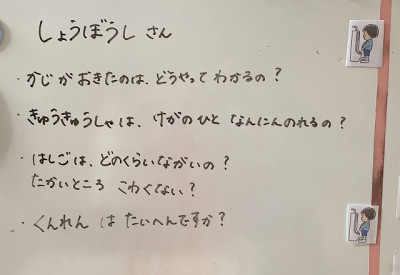 しょうぼうし さん
・かじが おきたのは、どうやって わかるの？
・きゅうきゅうしゃは、けがのひと なんにんのれるの？
・はしごは、どのくらいながいの？
たかいところ こわくない？
・くんれん は たいへんですか？